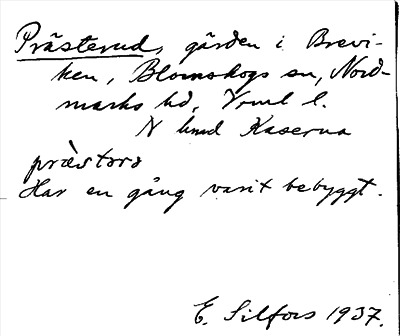 Prästerud, gärden i Brevi-
ken, Blomskogs sn, Nord-
marks hd, Vrml l.
N hmd Kaserna
prästorə
Har en gång varit bebyggt.
E. Silfors 1937.